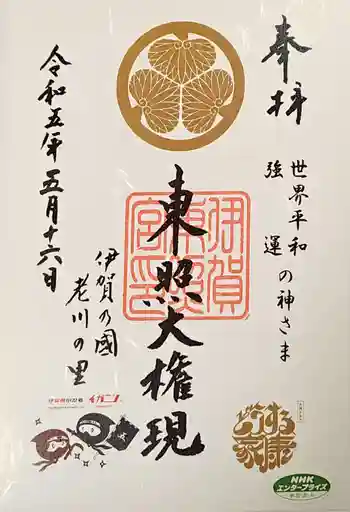 奉拝
世界平和
強運
の神さま
東照大権現
伊賀東照宮印
伊賀乃國
老川の里
令和五年五月十六日
イガニン
どうする家康
NHK
エンタープライズ